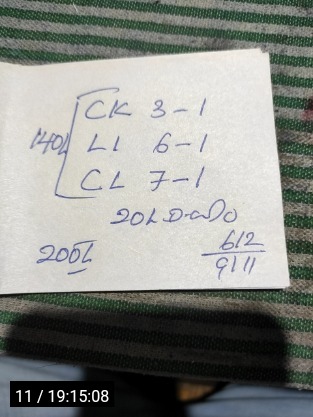 CK 3-1
140L LI 6-1
CL 7-1
20L
200L 612
9111
11 / 19:15:08